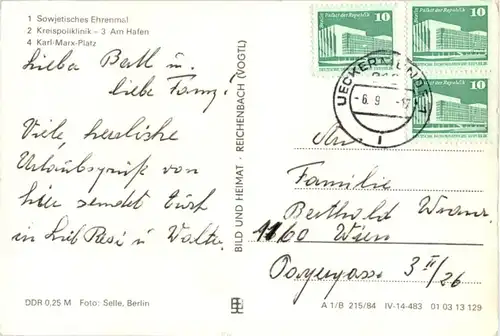 1 Sowjetisches Ehrenmal
2 Kreispoliklinik – 3 Am Hafen
4 Karl-Marx-Platz
Lieber Bertl u.
liebe Fam.!
Viele herzliche
Urlaubsgrüße von
hier sendet Euch
in Lieb Resi u Walter
DDR 0,25 M Foto: Selle, Berlin
BILD UND HEIMAT · REICHENBACH (VOGTL)
Palast der Republik
10
10
10
UECKERMÜNDE 1
-6.9
An
Familie
Berthold
1160 Wien
3 II/26
A 1/B 215/84 IV-14-483 01 03 13 129